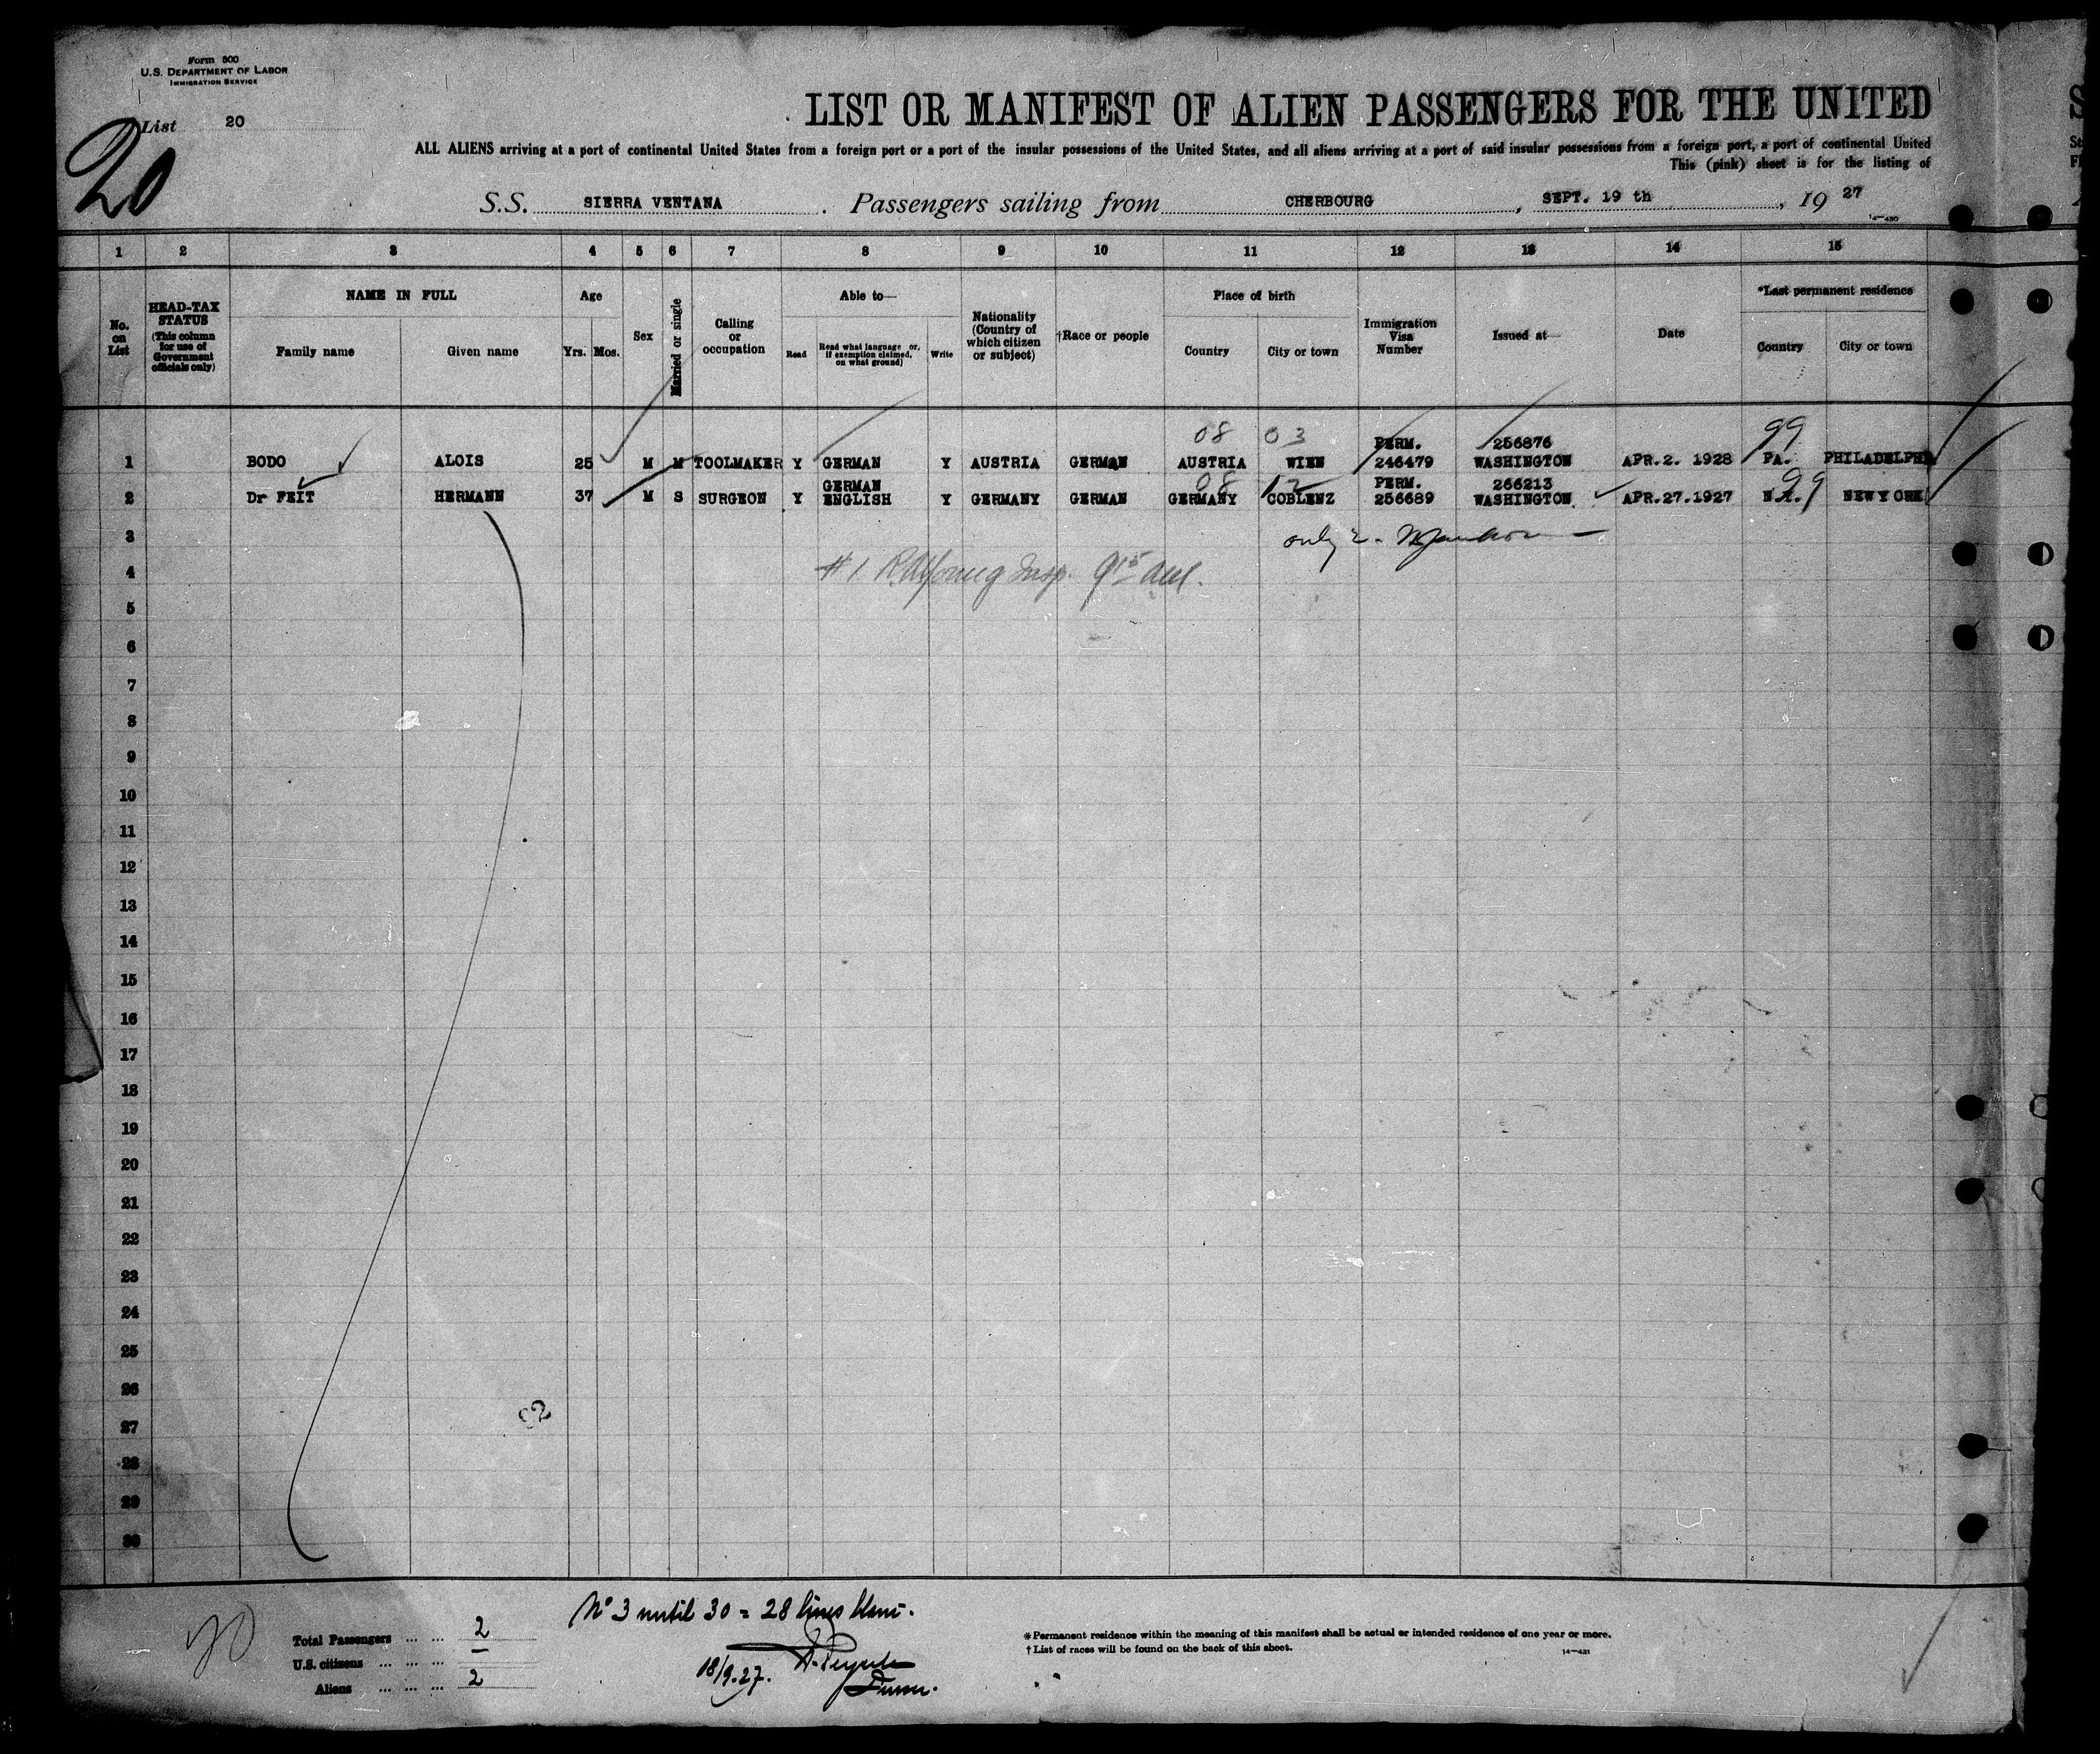 Form 500
U.S. DEPARTMENT OF LABOR
IMMIGRATION SERVICE
List 20
20
LIST OR MANIFEST OF ALIEN PASSENGERS FOR THE UNITED
ALL ALIENS arriving at a port of continental United States from a foreign port or a port of the insular possessions of the United States, and all aliens arriving at a port of said insular possessions from a foreign port, a port of continental United
This (pink) sheet is for the listing of
S.S. SIERRA VENTANA. Passengers sailing from CHERBOURG, SEPT. 19 th, 19 27
14—430
1 2 3 4 5 6 7 8 9 10 11 12 13 14 15
No. on List
HEAD-TAX STATUS (This column for use of Government officials only)
NAME IN FULL
Family name Given name
Age
Yrs. Mos.
Sex
Married or single
Calling or occupation
Able to—
Read Read what language or, if exemption claimed, on what ground) Write
Nationality (Country of which citizen or subject)
†Race or people
Place of birth
Country City or town
Immigration Visa Number
Issued at—
Date
*Last permanent residence
Country City or town
08 03 99
PERM. 256876
1 BODO ALOIS 25 M M TOOLMAKER Y GERMAN Y AUSTRIA GERMAN AUSTRIA WIEN 246479 WASHINGTON APR.2. 1928 PA. PHILADELPHI
08 12 99
GERMAN PERM. 266213
2 Dr FEIT HERMANN 37 M S SURGEON Y ENGLISH Y GERMANY GERMAN GERMANY COBLENZ 256689 WASHINGTON APR.27.1927 N. NEW YORK
3 only 2.
4 #1 Insp.
5
6
7
8
9
10
11
12
13
14
15
16
17
18
19
20
21
22
23
24
25
26
27
28
29
30
92
No 3 until 30 = 28 lines blanc.
20
Total Passengers ... ... 2
U.S. citizens ... ... ... —
Aliens ... ... ... 2
18/9.27.
*Permanent residence within the meaning of this manifest shall be actual or intended residence of one year or more.
†List of races will be found on the back of this sheet.
14—431